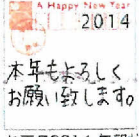 A Happy New Year
2014
本年もよろしく
お願い致します。